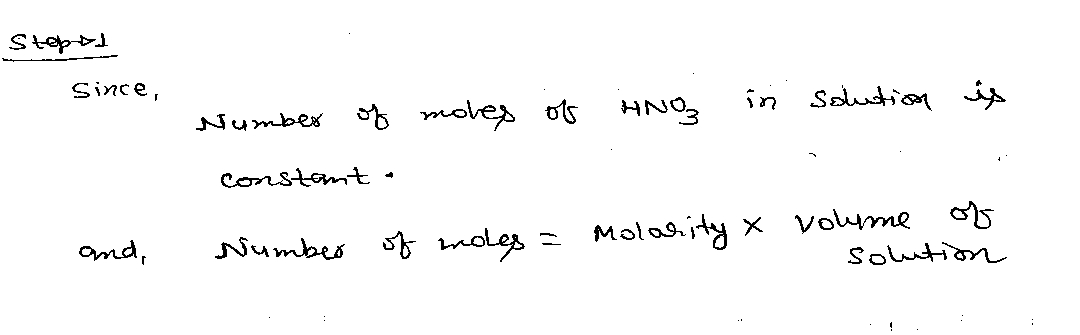 Step→1
Since,
Number of moles of HNO₃ in solution is
constant.
and, Number of moles = Molarity × volume of
solution